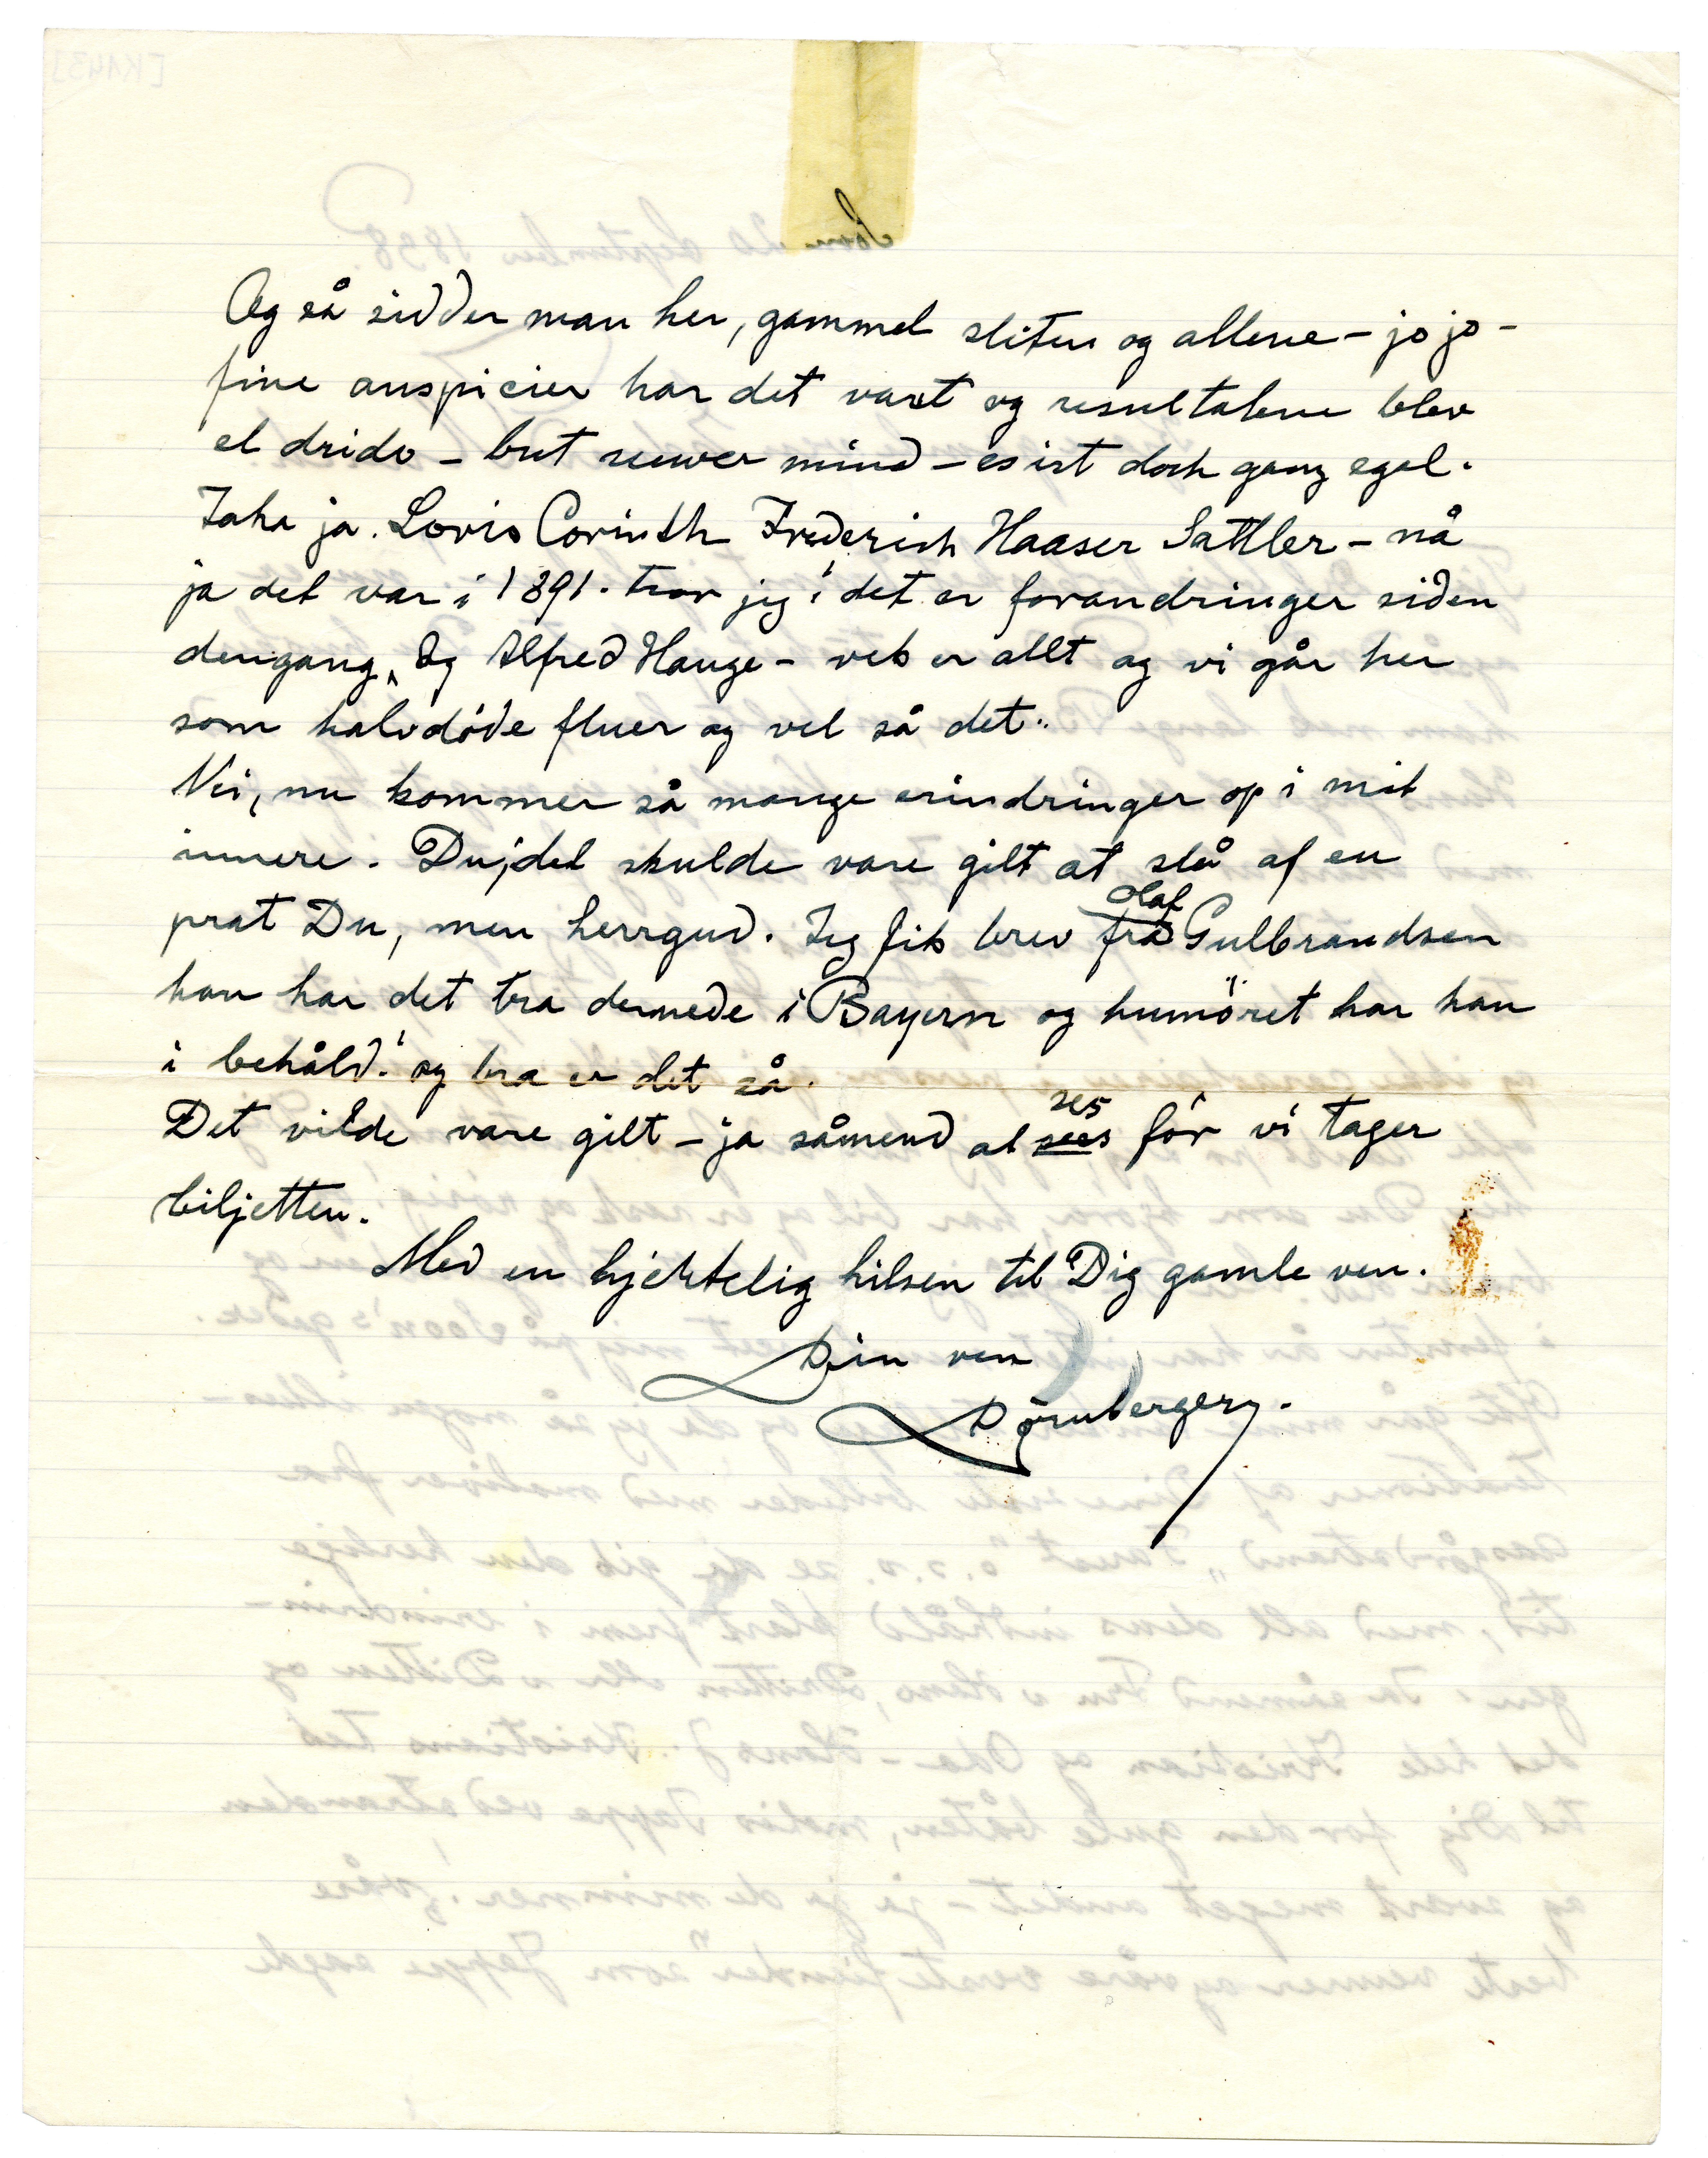 Og så sidder man her, gammel sliten og allene – jo jo –
fine auspicier har det vært og resultatene blev
el drido – but newer mind – es ist doch ganz egal.
Jaha ja. Lovis Corinth Frederich Haaser Sattler – nå
ja det var i 1891. tror jeg! det er forandringer siden
dengang, Og Alfred Hauge – vek er allt og vi går her
som halvdöde fluer og vel så det..
Nei, nu kommer så mange erindringer op i mit
innere. Du, det skulde være gilt at slå af en
prat Du, men herrgud. Jeg fik brev fra Olaf Gulbrandsen
han har det bra dernede i Bayern og humöret har han
i behåld! og bra er det så.
Det vilde være gilt – ja såmend at sees ses för vi tager
biljetten.
Med en hjertelig hilsen til Dig gamle ven.
Din ven
Dörnberger.